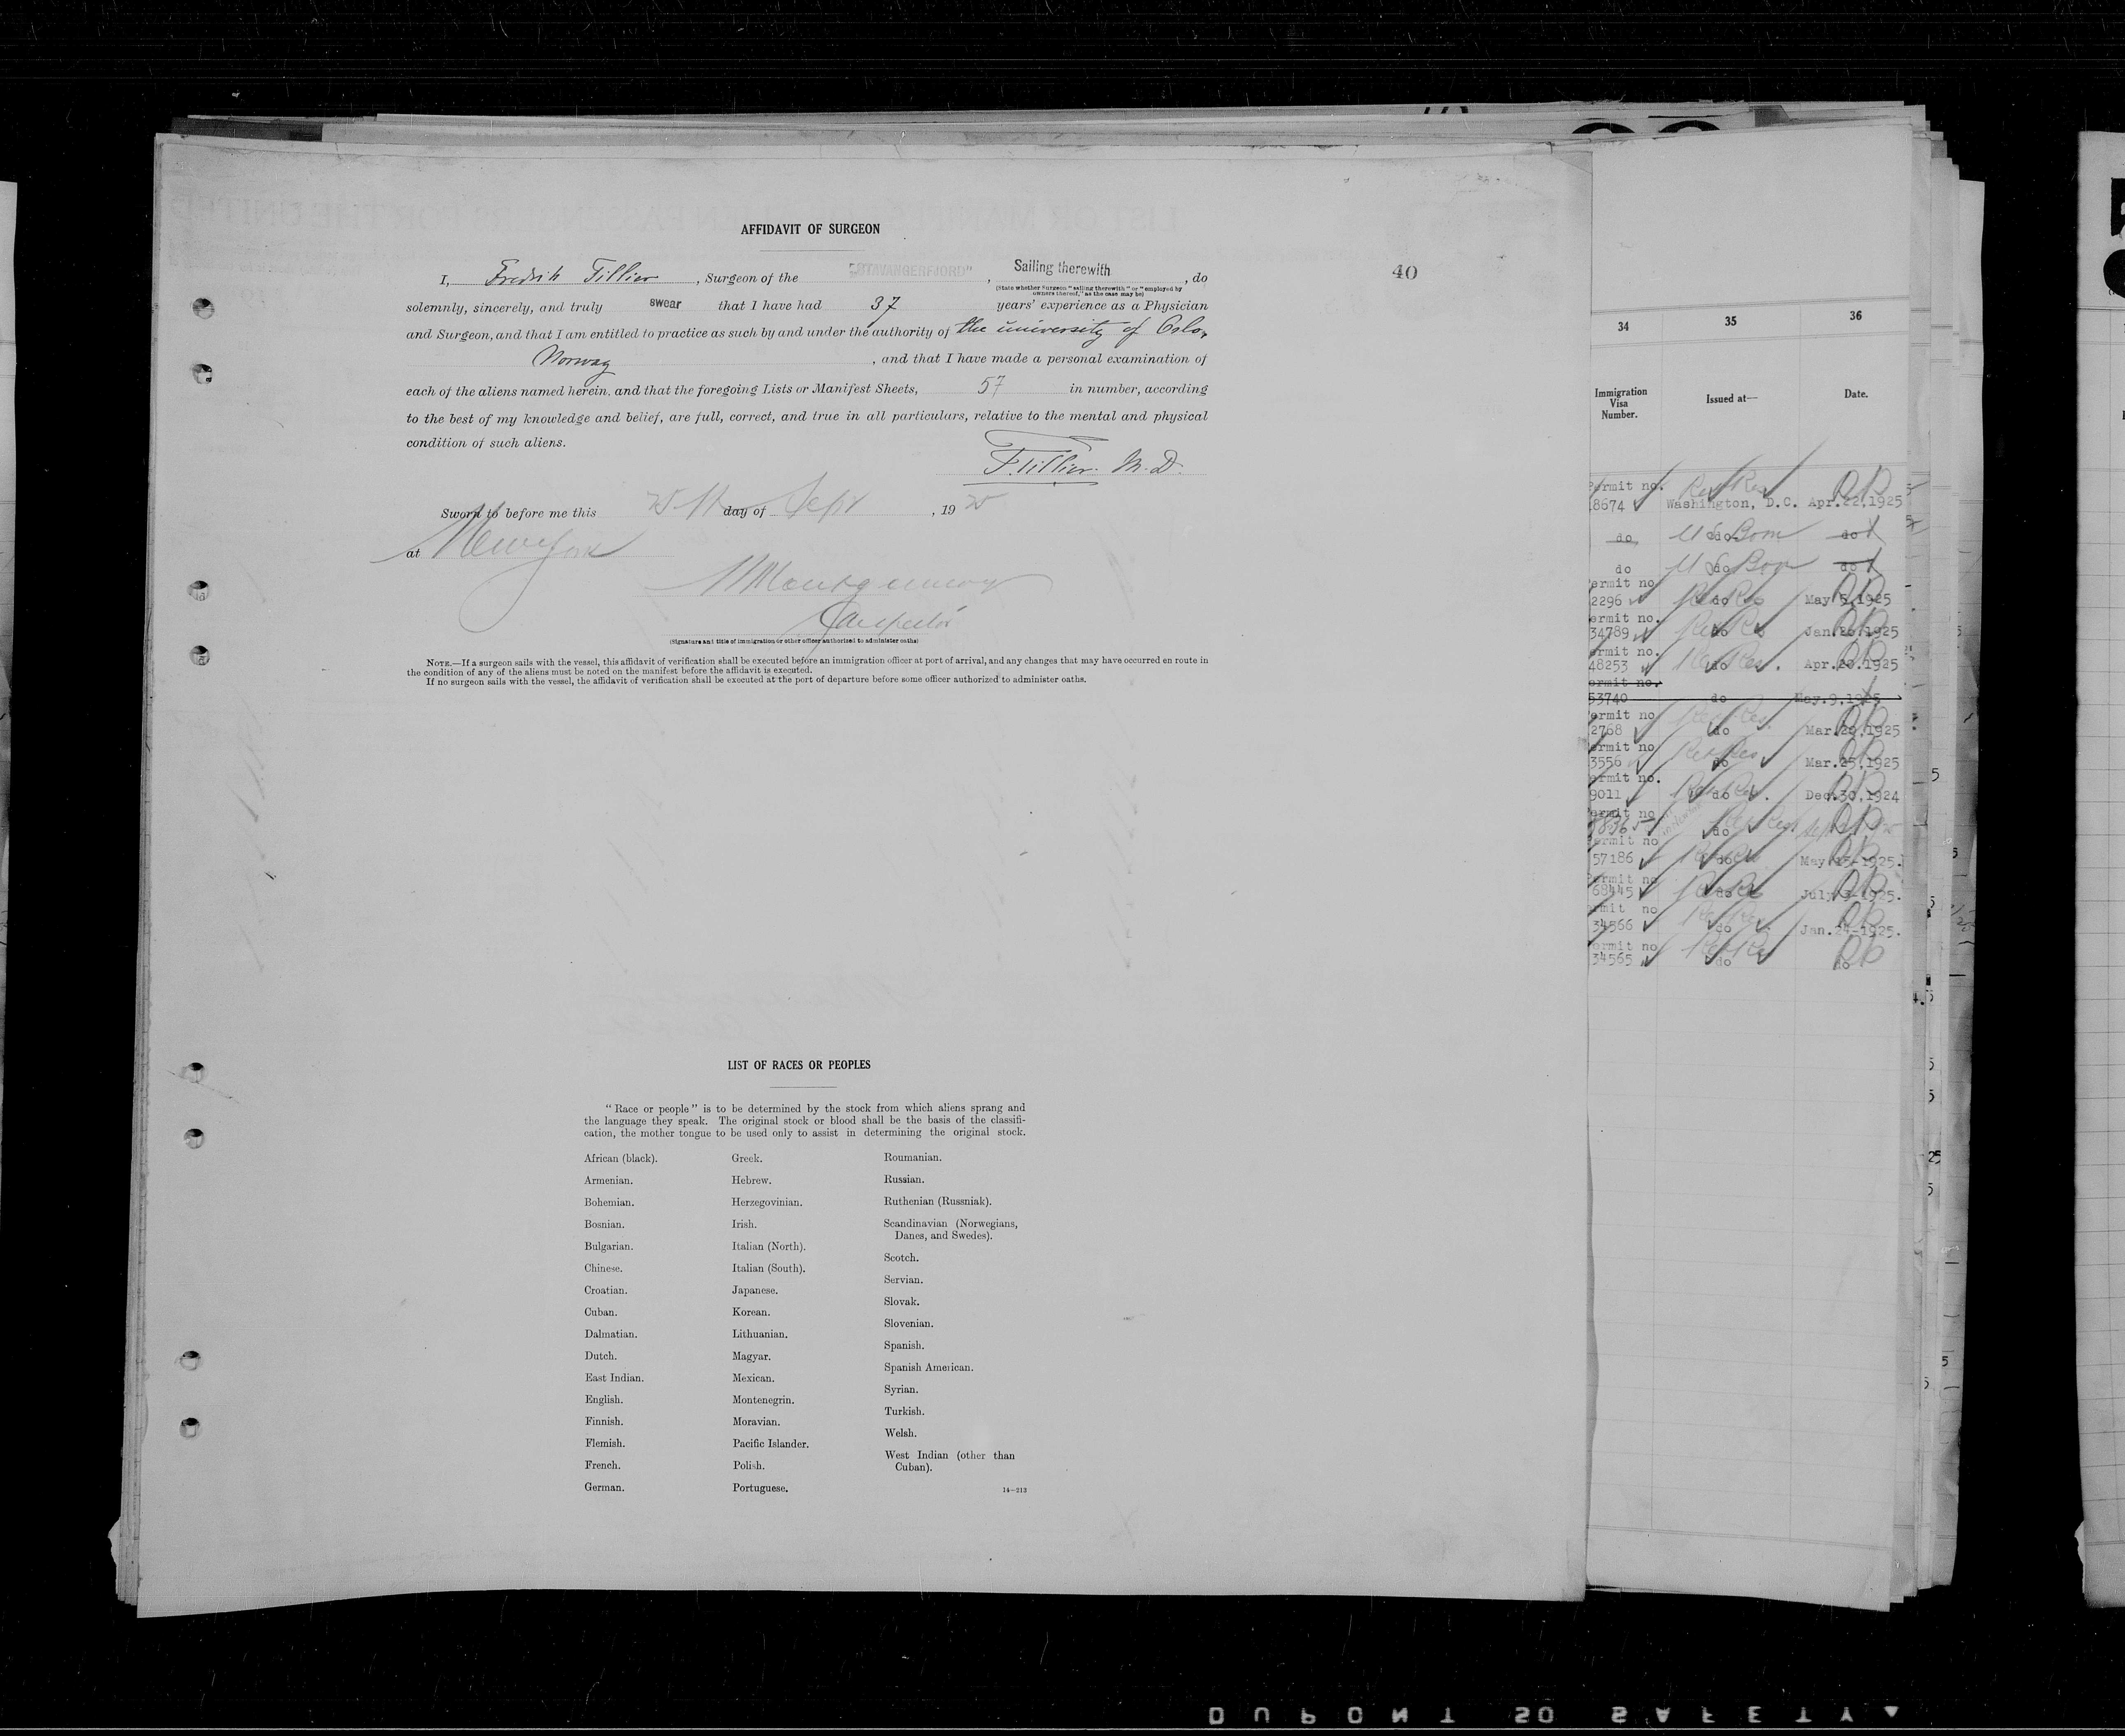 AFFIDAVIT OF SURGEON
40
I, Fredrik Tillier, Surgeon of the "STAVANGERFJORD", Sailing therewith, do
(State whether Surgeon "sailing therewith" or "employed by
owners thereof," as the case may be)
solemnly, sincerely, and truly swear that I have had 37 years' experience as a Physician
and Surgeon, and that I am entitled to practice as such by and under the authority of the university of Oslo,
Norway, and that I have made a personal examination of
each of the aliens named herein, and that the foregoing Lists or Manifest Sheets, 57 in number, according
to the best of my knowledge and belief, are full, correct, and true in all particulars, relative to the mental and physical
condition of such aliens.
F. Tillier. M.D.
Sworn to before me this 25 th day of Sept, 1925
at New York
Montgomery
Inspector
(Signature and title of immigration or other officer authorized to administer oaths)
NOTE.—If a surgeon sails with the vessel, this affidavit of verification shall be executed before an immigration officer at port of arrival, and any changes that may have occurred en route in
the condition of any of the aliens must be noted on the manifest before the affidavit is executed.
If no surgeon sails with the vessel, the affidavit of verification shall be executed at the port of departure before some officer authorized to administer oaths.
LIST OF RACES OR PEOPLES
"Race or people" is to be determined by the stock from which aliens sprang and
the language they speak. The original stock or blood shall be the basis of the classifi-
cation, the mother tongue to be used only to assist in determining the original stock.
African (black).
Armenian.
Bohemian.
Bosnian.
Bulgarian.
Chinese.
Croatian.
Cuban.
Dalmatian.
Dutch.
East Indian.
English.
Finnish.
Flemish.
French.
German.
Greek.
Hebrew.
Herzegovinian.
Irish.
Italian (North).
Italian (South).
Japanese.
Korean.
Lithuanian.
Magyar.
Mexican.
Montenegrin.
Moravian.
Pacific Islander.
Polish.
Portuguese.
Roumanian.
Russian.
Ruthenian (Russniak).
Scandinavian (Norwegians,
Danes, and Swedes).
Scotch.
Servian.
Slovak.
Slovenian.
Spanish.
Spanish American.
Syrian.
Turkish.
Welsh.
West Indian (other than
Cuban).
14—213
34 35 36
Immigration
Visa
Number.
Issued at—
Date.
ermit no.
8674 Washington, D.C. Apr.22,1925
do do do
do do do
ermit no
2296 do May 5,1925
ermit no.
34789 do Jan.26,1925
ermit no.
48253 do Apr.20.1925
ermit no.
53740 do May.9,1925
ermit no
2768 do Mar.20,1925
ermit no
3556 do Mar.25,1925
ermit no.
9011 do Dec.30,1924
ermit no
do
ermit no
57186 do May.15-1925.
ermit no
68445 do July 3-1925.
rmit no
34566 do Jan.24-1925.
ermit no
34565 do do
DUPONT SAFETY